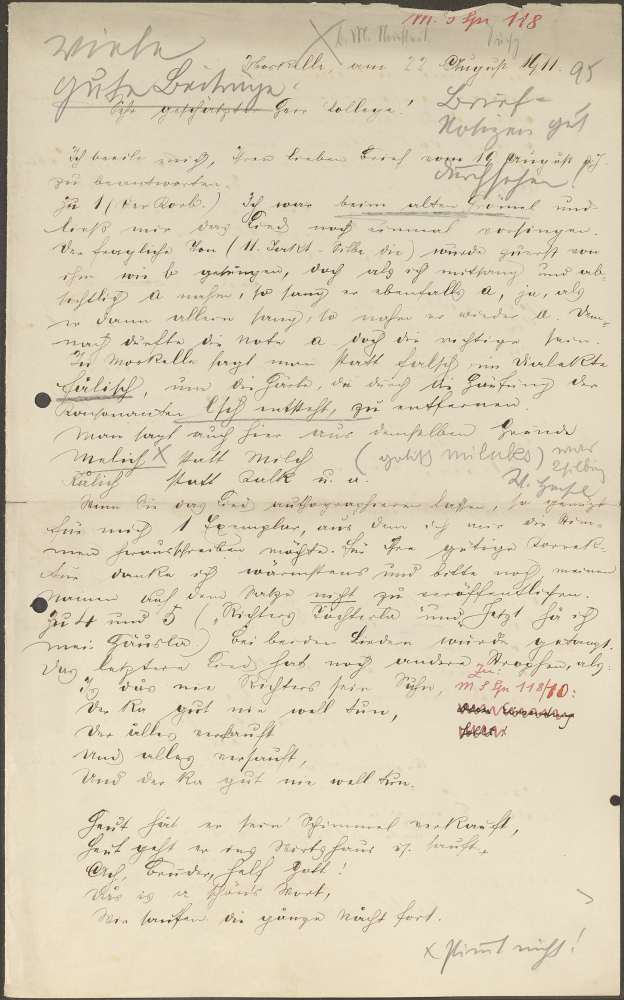 M. 5 Gn 118
Viele
gute Beiträge!
am 22. August 1911.
95
Sehr geschätzter Herr Kollege!
Brief-
Notizen gut
durchsehen!
Ich beeile mich, Ihren lieben Brief vom 19. August
zu beantworten.
Zu 1 (Der Korb.) Ich war beim alten und
ließ mir das Lied noch einmal vorsingen.
Der fragliche Ton (11. Takt - Silbe die) wurde zuerst von
ihm wie b gesungen, doch als ich mitsang und ab-
sichtlich a nahm, so sang er ebenfalls a, ja, als
er dann allein sang, so nahm er wieder a. Dem-
nach dürfte die Note a doch die richtige sein.
In Morkelle sagt man statt falsch im Dialekte
fälisch, um die Härte, die durch die Häufung der
Konsonanten lsch entsteht, zu entfernen.
Man sagt auch hier aus demselben Grunde
Melich X statt Milch (gotisch miluks) war
Kalich statt Kalk u. a.
Wenn Sie das Lied autographieren lassen, so genügt
für mich 1 Exemplar, aus dem ich mir die Stim-
men herausschreiben möchte. Für Ihre gütige Korrek-
tur danke ich wärmstens und bitte noch, meinen
Namen auf dem Satze nicht zu veröffentlichen.
Zu 4 und 5 ("Richters Töchterla" und "Jetzt hå ich
mei Häusla.") Bei beiden Liedern wurde getanzt.
Das letztere Lied hat noch andere Strophen, als:
Zu:
Is dås nie Richters sein Suhn, M 5 Gn 118/10:
Der ka gut nie well tun,
Der alles verkauft
Und alles versauft,
Und der ka gut nie well tun.
Heut håt er sein Schimmel verkauft,
Heut geht er ins Wirtshaus u. sauft.
Ach, Bruder, helf Gott!
Dås is a schöns Wort,
Wir saufen die gånze Nåcht fort.
x stimmt nicht!